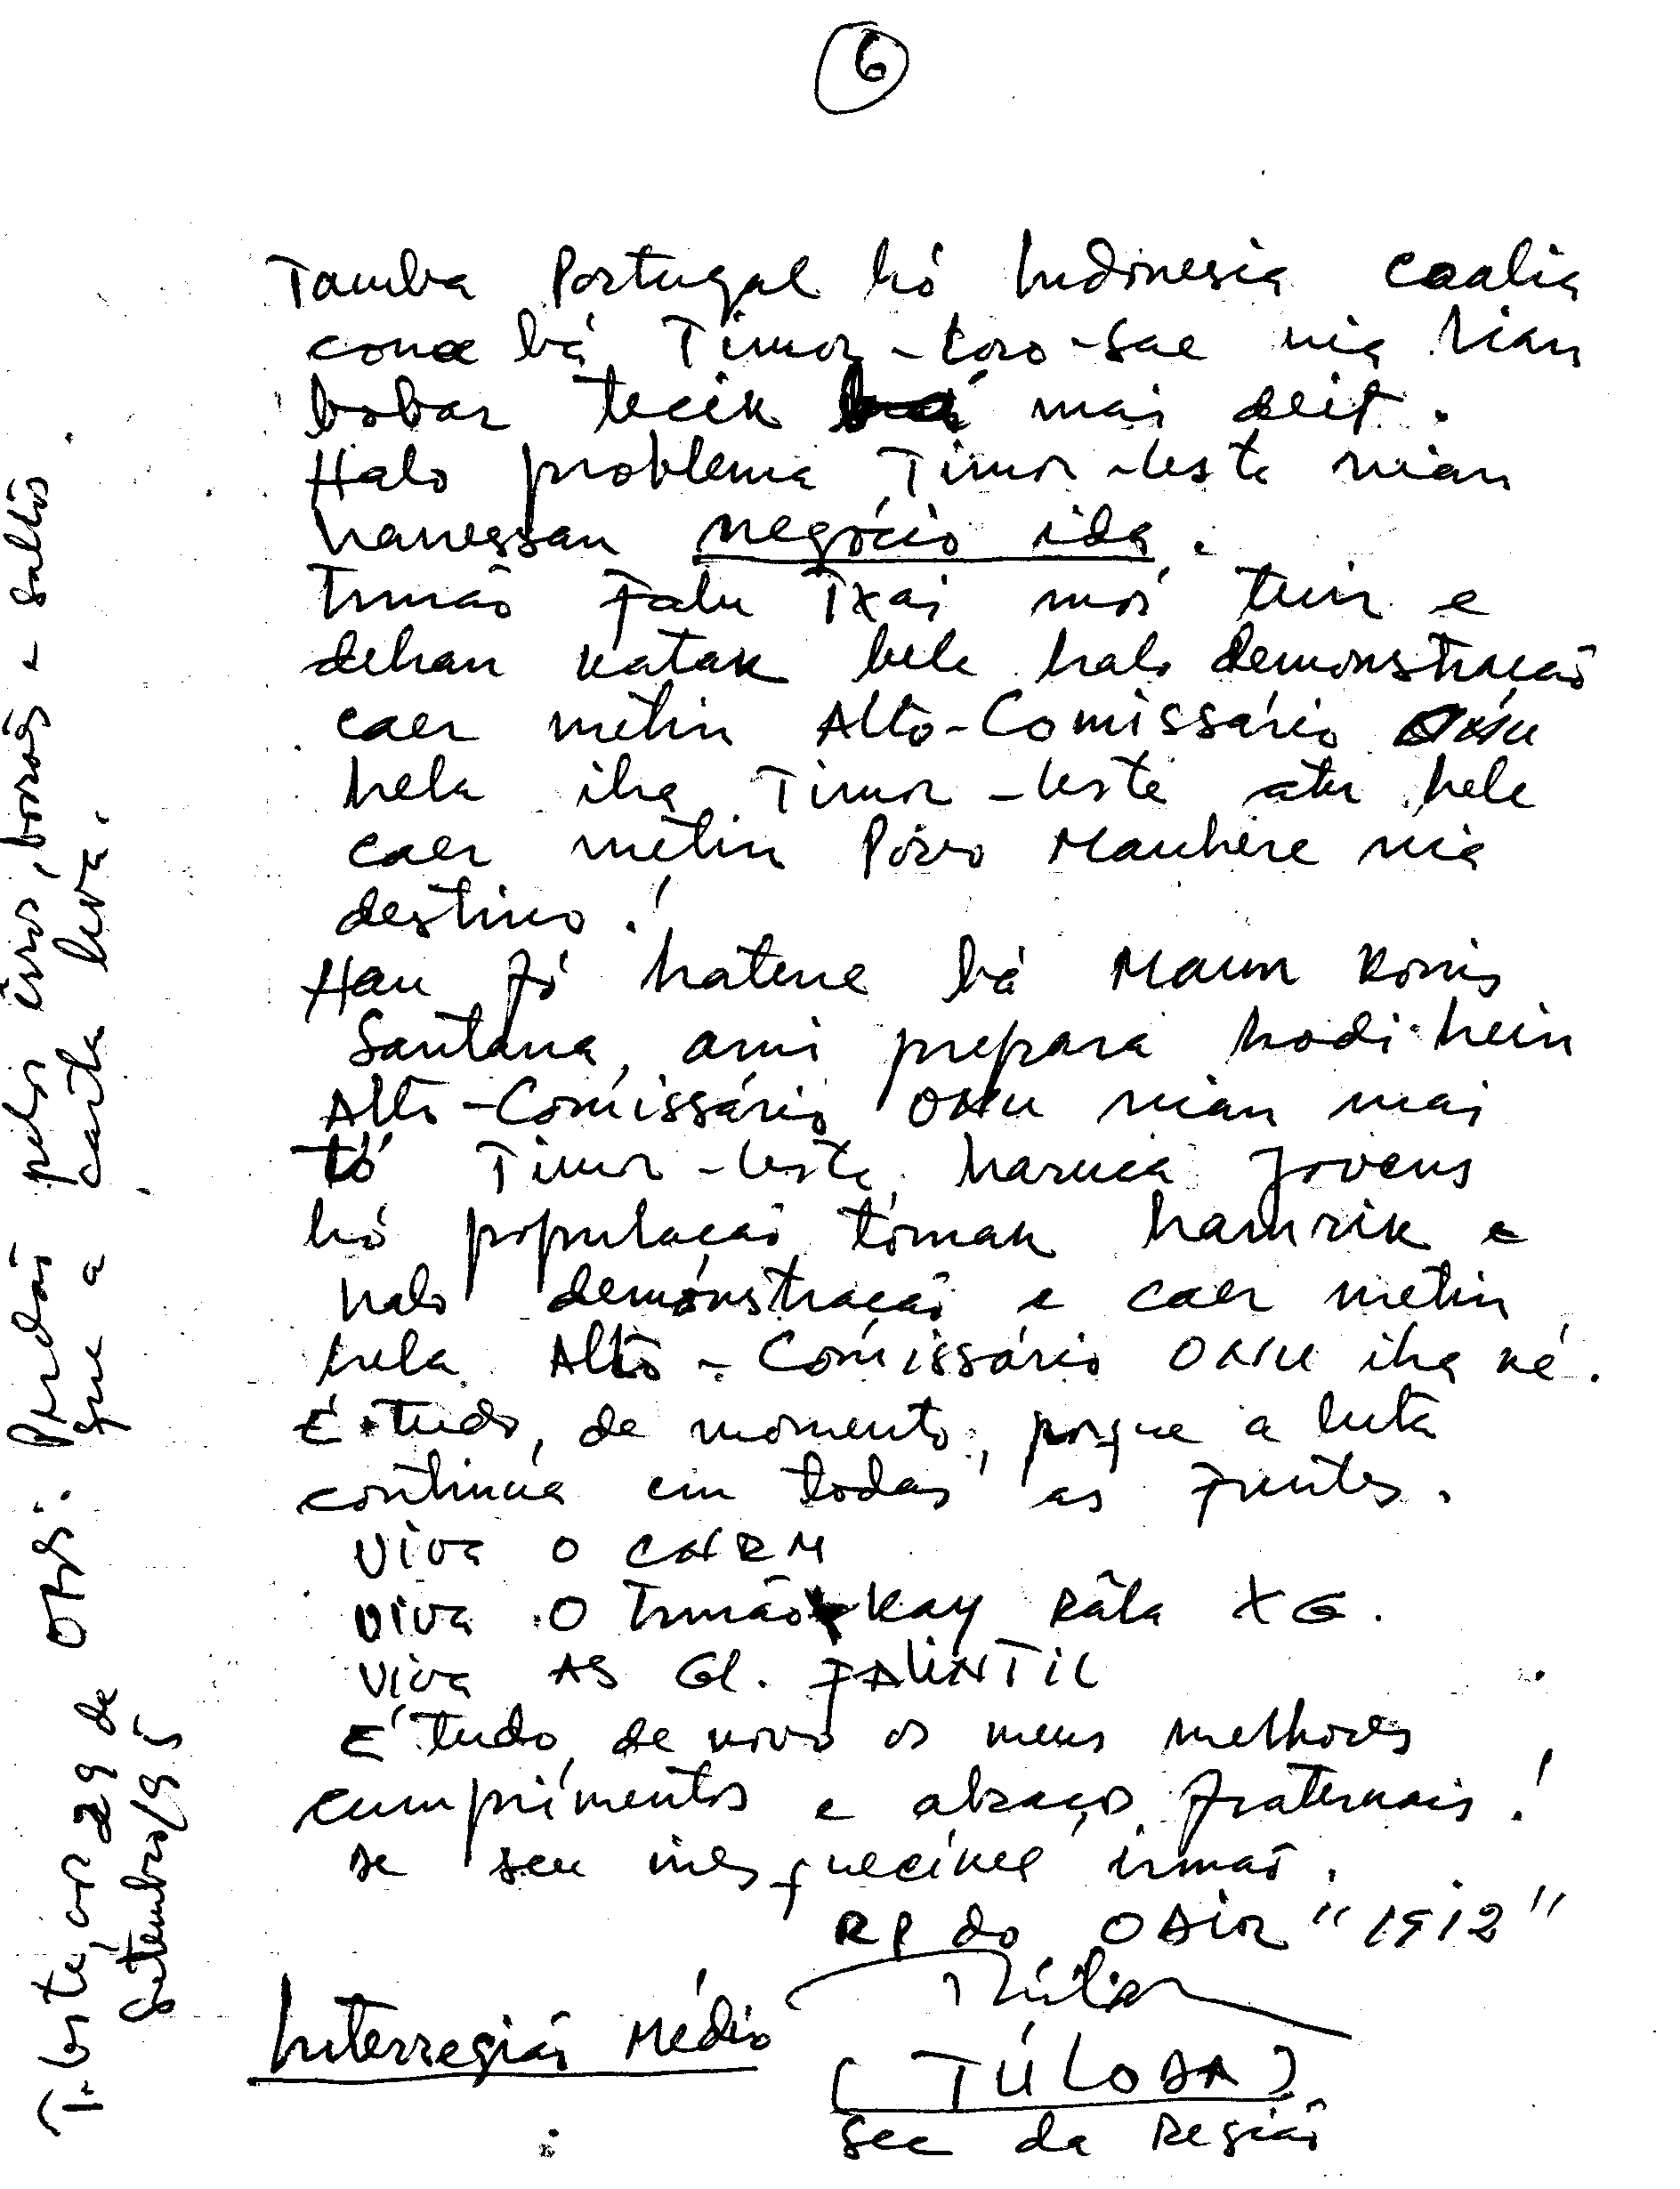 6
Tamba Portugal hó Indonesia coalia
cona bá Timor-Loro-Sae nia lian
bobar tecik mai deit.
Halo problema Timor-Leste nian
hanessan negócio ida.
Irmão Falu Txai mós tuir e
dehan katak bele halo demonstração
caer metin Alto-Comissário ONU
hela iha Timor-Leste atu bele
caer metin Povo Maubere nia
destino!
Hau fó hatene bá Maun Konis
Santana, ami prepara hodi hein
Alto-Comissário ONU nian mai
tó Timor-Leste, haruca jovens
hó população tómak hamrik e
halo demonstração e caer metin
hela Alto-Comissário ONU iha né.
É tudo, de momento, porque a luta
continua em todas as frentes.
Viva o CNRM
Viva o Irmão Kay Râla XG.
Viva AS Gl. FALINTIL
É tudo, de novo os meus melhores
cumprimentos e abraços fraternais!
de seu inesquecível irmão.
RP do ODIR "1912"
(TÚLODA)
Sec da Região
Interregião Médio
T-Leste, aos 29 de
Setembro/95
Obs: Perdão pelos erros, borrões e saltos
que a carta leva.